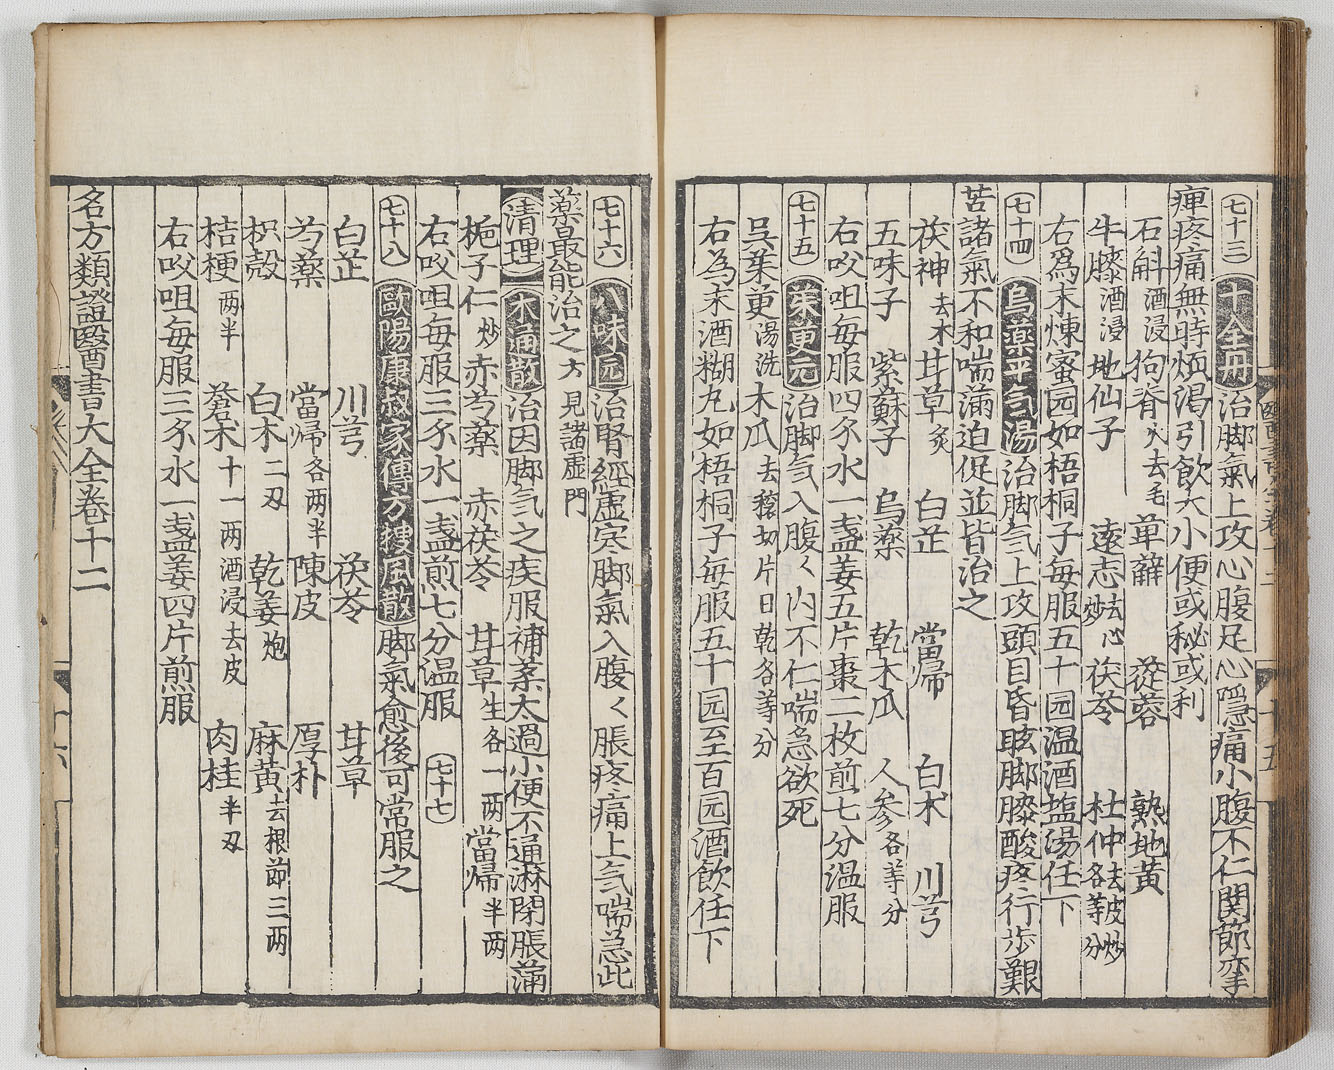 七十三 十全丹 治脚氣上攻心腹足心隱痛小腹不仁関節挛
痺疼痛無時煩渴引飲大小便或秘或利
石斛酒浸 狗脊火去毛 萆薢 蓯蓉 熟地黄
牛膝酒浸 地仙子 遠志炒去心 茯苓 杜仲去皮炒各等分
右爲末煉蜜园如梧桐子每服五十园温酒塩湯任下
七十四 烏薬平气湯 治脚气上攻頭目昏眩脚膝酸疼行步艱
苦諸氣不和喘滿迫促並皆治之
茯神去木 甘草炙 白芷 當帰 白术 川芎
五味子 紫蘇子 烏薬 乾木瓜 人参各等分
右㕮咀每服四分水一盞姜五片棗二枚煎七分温服
七十五 茱萸元 治脚气入腹く内不仁喘急欲死
吳茱萸湯洗 木瓜去穰切片日乾各等分
右為末酒糊丸如梧桐子每服五十园至百园酒飲任下
七十六 八味园 治腎經虛寒脚氣入腹く脹疼痛上气喘急此
薬最能治之 方見諸虛門
清理 木通散 治因脚气之疾服補薬太過小便不通淋閉脹滿
梔子仁炒 赤芍薬 赤茯苓 甘草生各一两 當帰半两
右㕮咀每服三分水一盞煎七分温服 七十七
七十八 歐陽康叔家傳方䅹風散 脚氣愈後可常服之
白芷 川芎 茯苓 甘草
芍薬 當帰各两半 陳皮 厚朴
枳殻 白术二刄 乾姜炮 麻黄去根節三两
桔梗两半 蒼术十一两酒浸去皮 肉桂半刄
右㕮咀每服三分水一盞姜四片煎服
名方類證醫書大全卷十二